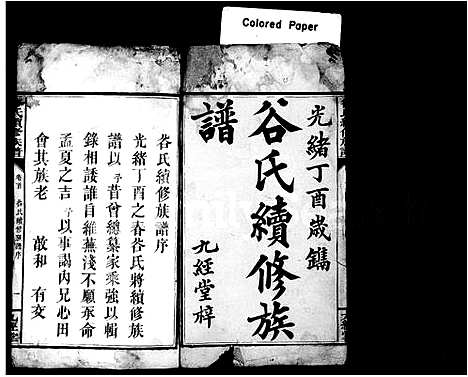 Colored Paper
光緒丁酉歲鐫
谷氏續修族
譜
九經堂梓
谷氏續修族譜序
光緒丁酉之春谷氏將續修族
譜以予昔曾總纂家乘強以輯
錄相諉誰自維蕪淺不願承命
孟夏之吉予以事謁內兄心田
會其族老 敢和 有交
氏續修族譜
卷首 谷氏續修族譜序 一
九經堂